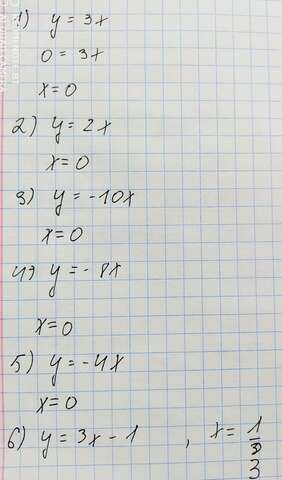 1) y = 3x
0 = 3x
x = 0
2) y = 2x
x = 0
3) y = -10x
x = 0
4) y = -8x
x = 0
5) y = -4x
x = 0
6) y = 3x - 1 , x = 1/3
3